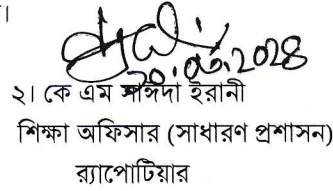 ।
২০.০৩.২০২৪
২। কে এম সাঈদা ইরানী
শিক্ষা অফিসার (সাধারণ প্রশাসন)
র‍্যাপোটিয়ার